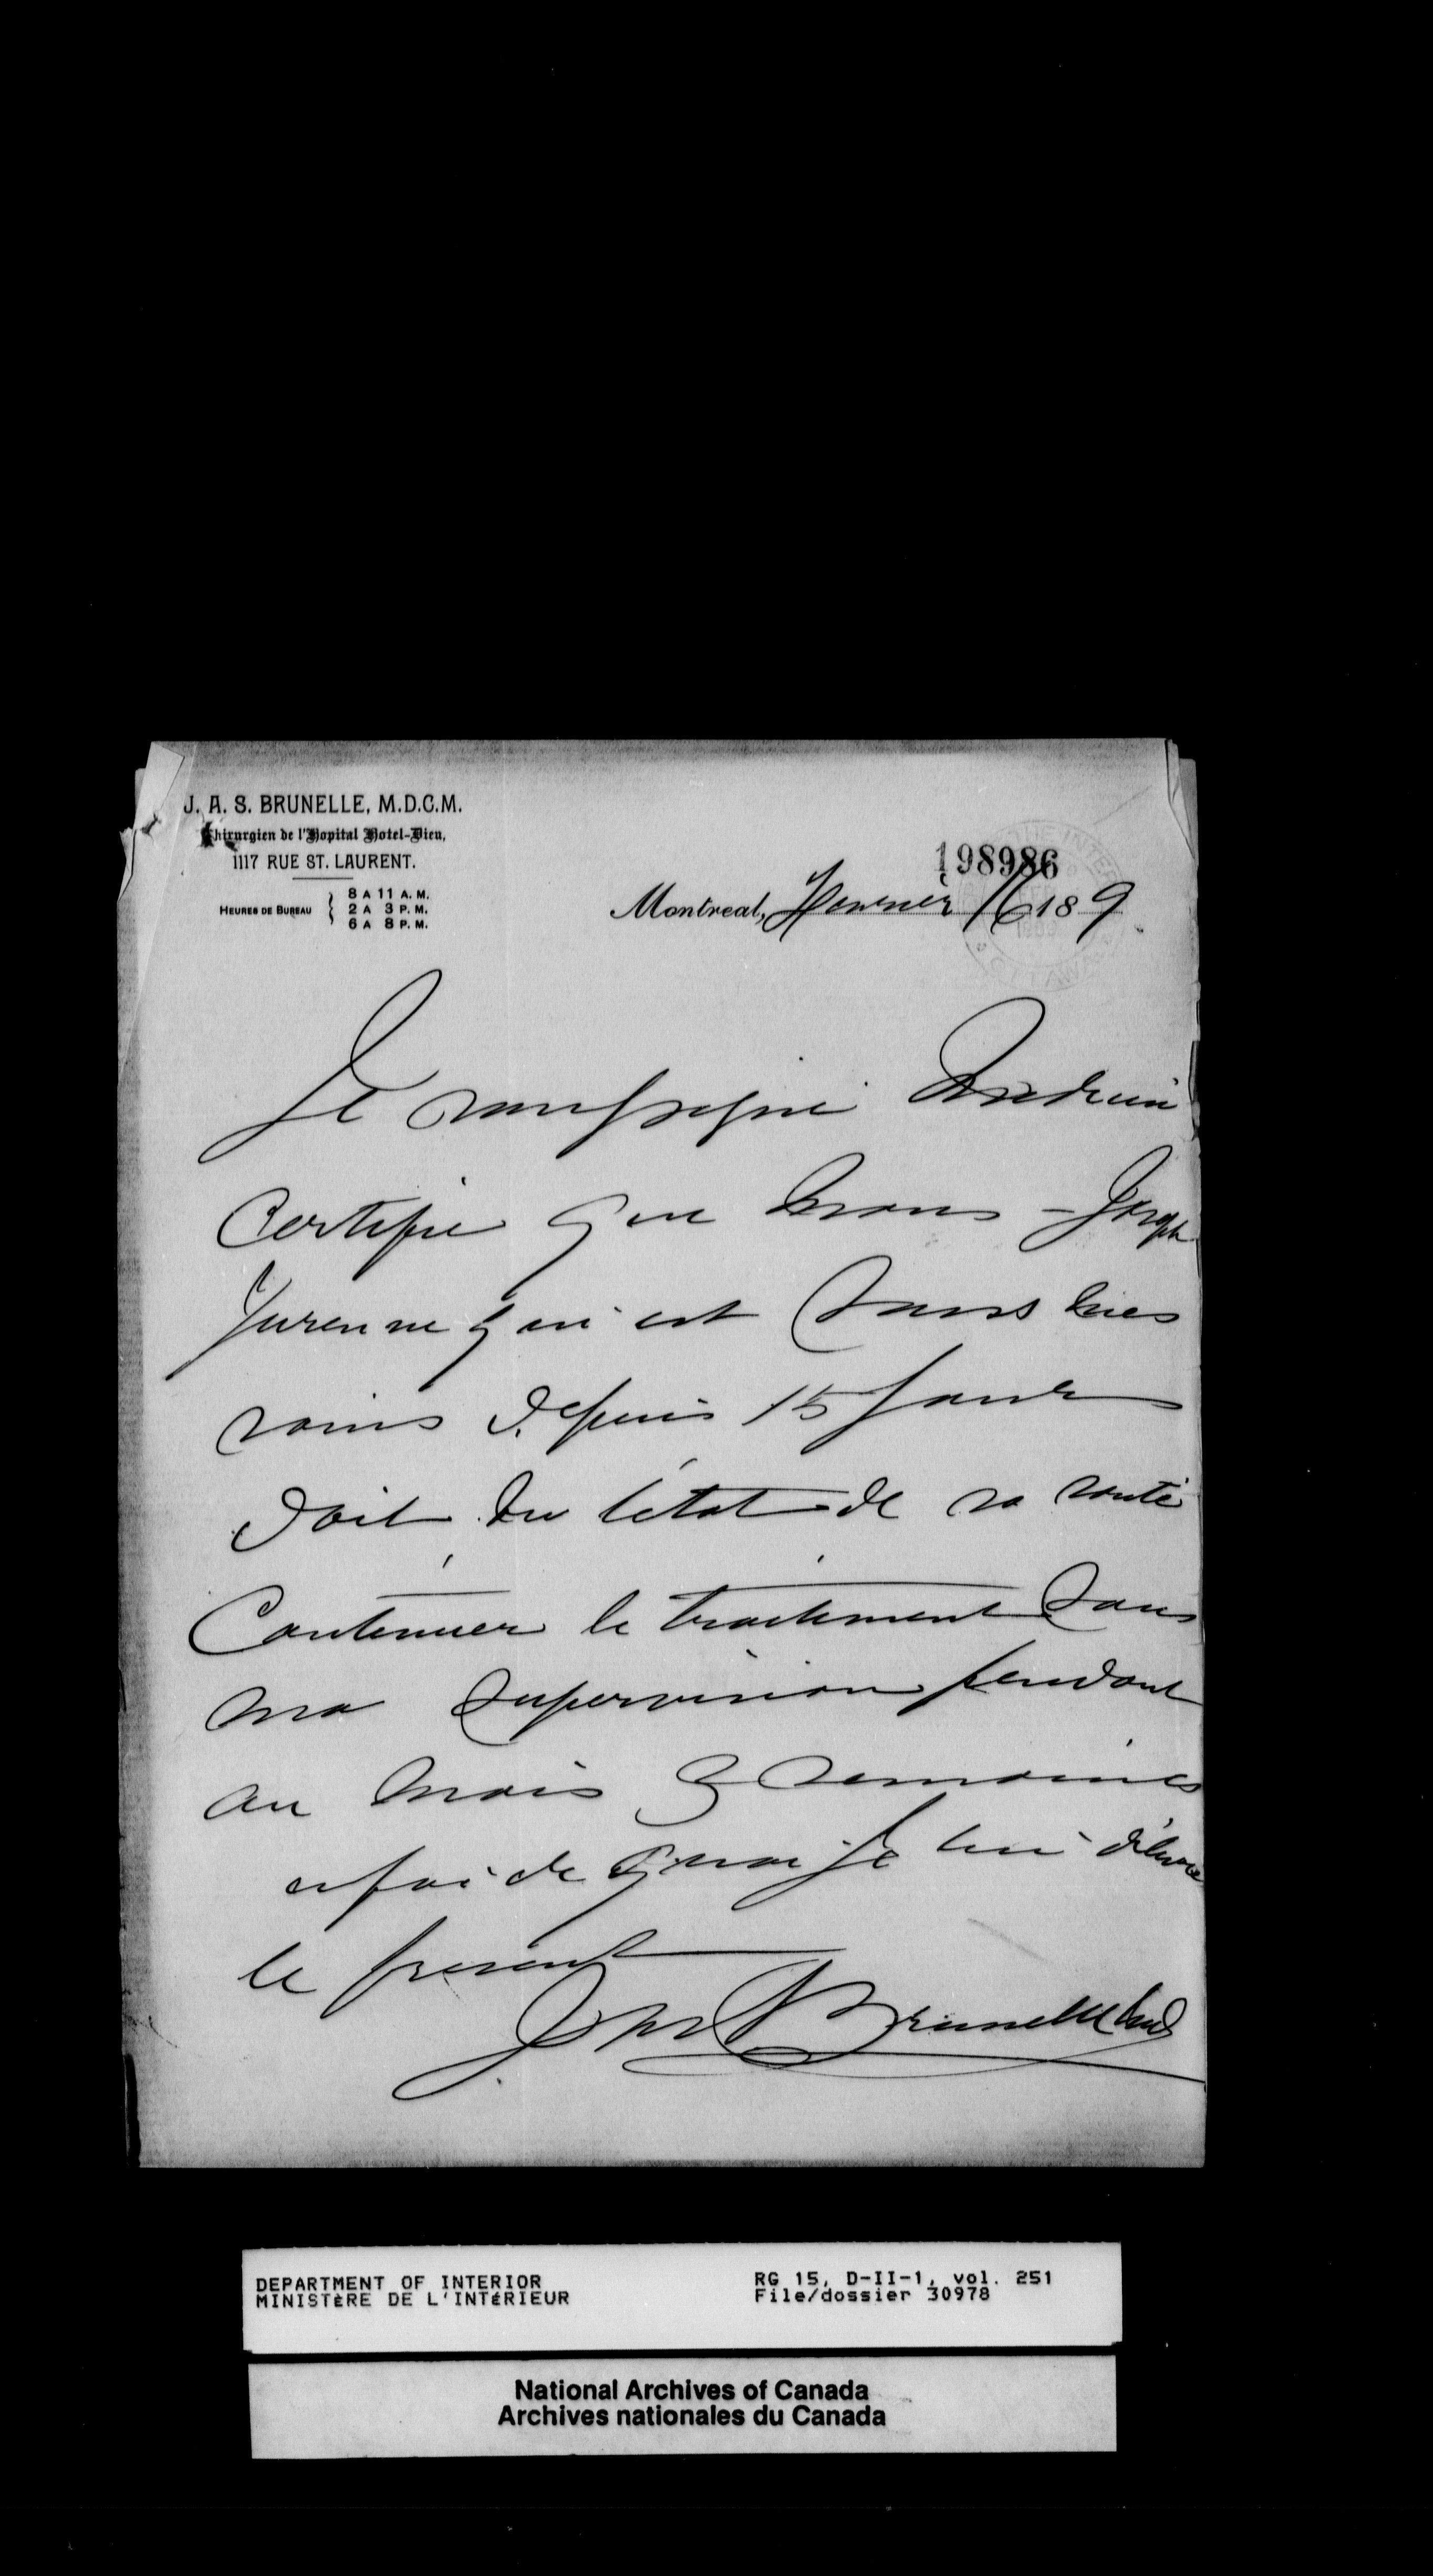 J. A. S. BRUNELLE, M.D.C.M.
Chirurgien de l'Hopital Hotel-Dieu,
1117 RUE ST. LAURENT.
HEURES DE BUREAU
8 A 11 A. M.
2 A 3 P. M.
6 A 8 P. M.
198986
Montreal, 16 189
Je soussigné
Certifie que Mons - Joseph
Turenne qui est sous mes
soins depuis 15 jours
doit vu l'état de sa santé
Continuer le traitement sous
ma supervision pendant
au mois 3 semaines
en foi de quoi je lui délivre
le present
Brunelle
DEPARTMENT OF INTERIOR
MINISTÈRE DE L'INTÉRIEUR
RG 15, D-II-1, vol. 251
File/dossier 30978
National Archives of Canada
Archives nationales du Canada